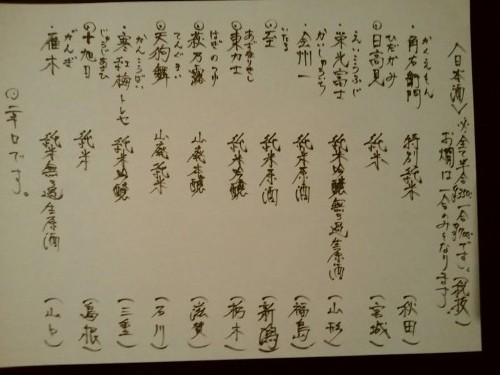 〈日本酒〉 ※全て半合¥350、一合¥700です。(税抜)
お燗は一合のみとなります。
かくえもん
・角右衛門 特別純米 (秋田)
ひだかみ
◎日高見 純米 (宮城)
えいこうふじ
・栄光冨士 純米吟醸無ろ過生原酒 (山形)
かいしゅういち
・会州一 純米原酒 (福島)
いたる
◎至 純米原酒 (新潟)
あずまりきし
◎東力士 純米吟醸 (栃木)
はぎのつゆ
◎萩乃露 山廃本醸 (滋賀)
てんぐまい
◎天狗舞 山廃純米 (石川)
かんこうばい
・寒紅梅 純米吟醸 (三重)
じゅうじあさひ
◎十旭日 純米 (島根)
がんぎ
・雁木 純米無ろ過生原酒 (山口)
◎辛口です。